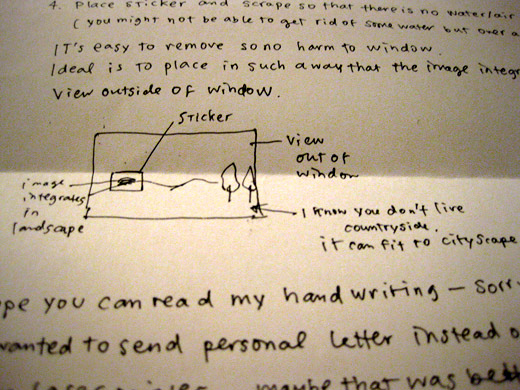 4. Place sticker and scrape so that there is no water/air
( you might not be able to get rid of some water but over a
IT's easy to remove so no harm to window.
Ideal is to place in such a way that the image integr
View outside of window.
sticker
view
out of
window
image
integrates
in
landscape
I know you don't live
countryside.
it can fit to cityscape
ope you can read my hand writing – Sorr
wanted to send personal letter instead o
maybe that was bett